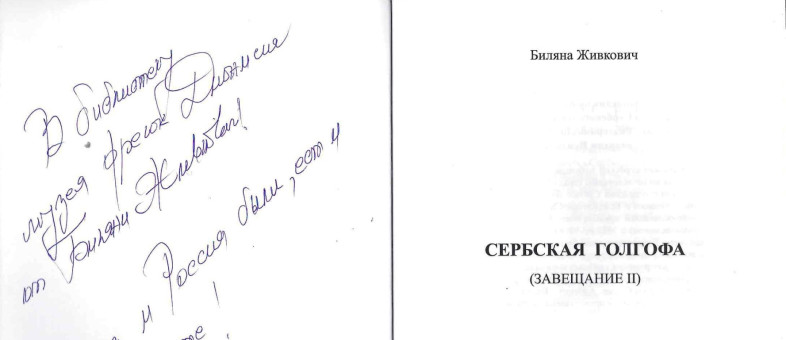 В библиотеку
музея фресок Дионисия
от Биляны Живкович!
и Россия были, есть и
!
Биляна Живкович
СЕРБСКАЯ ГОЛГОФА
(ЗАВЕЩАНИЕ II)